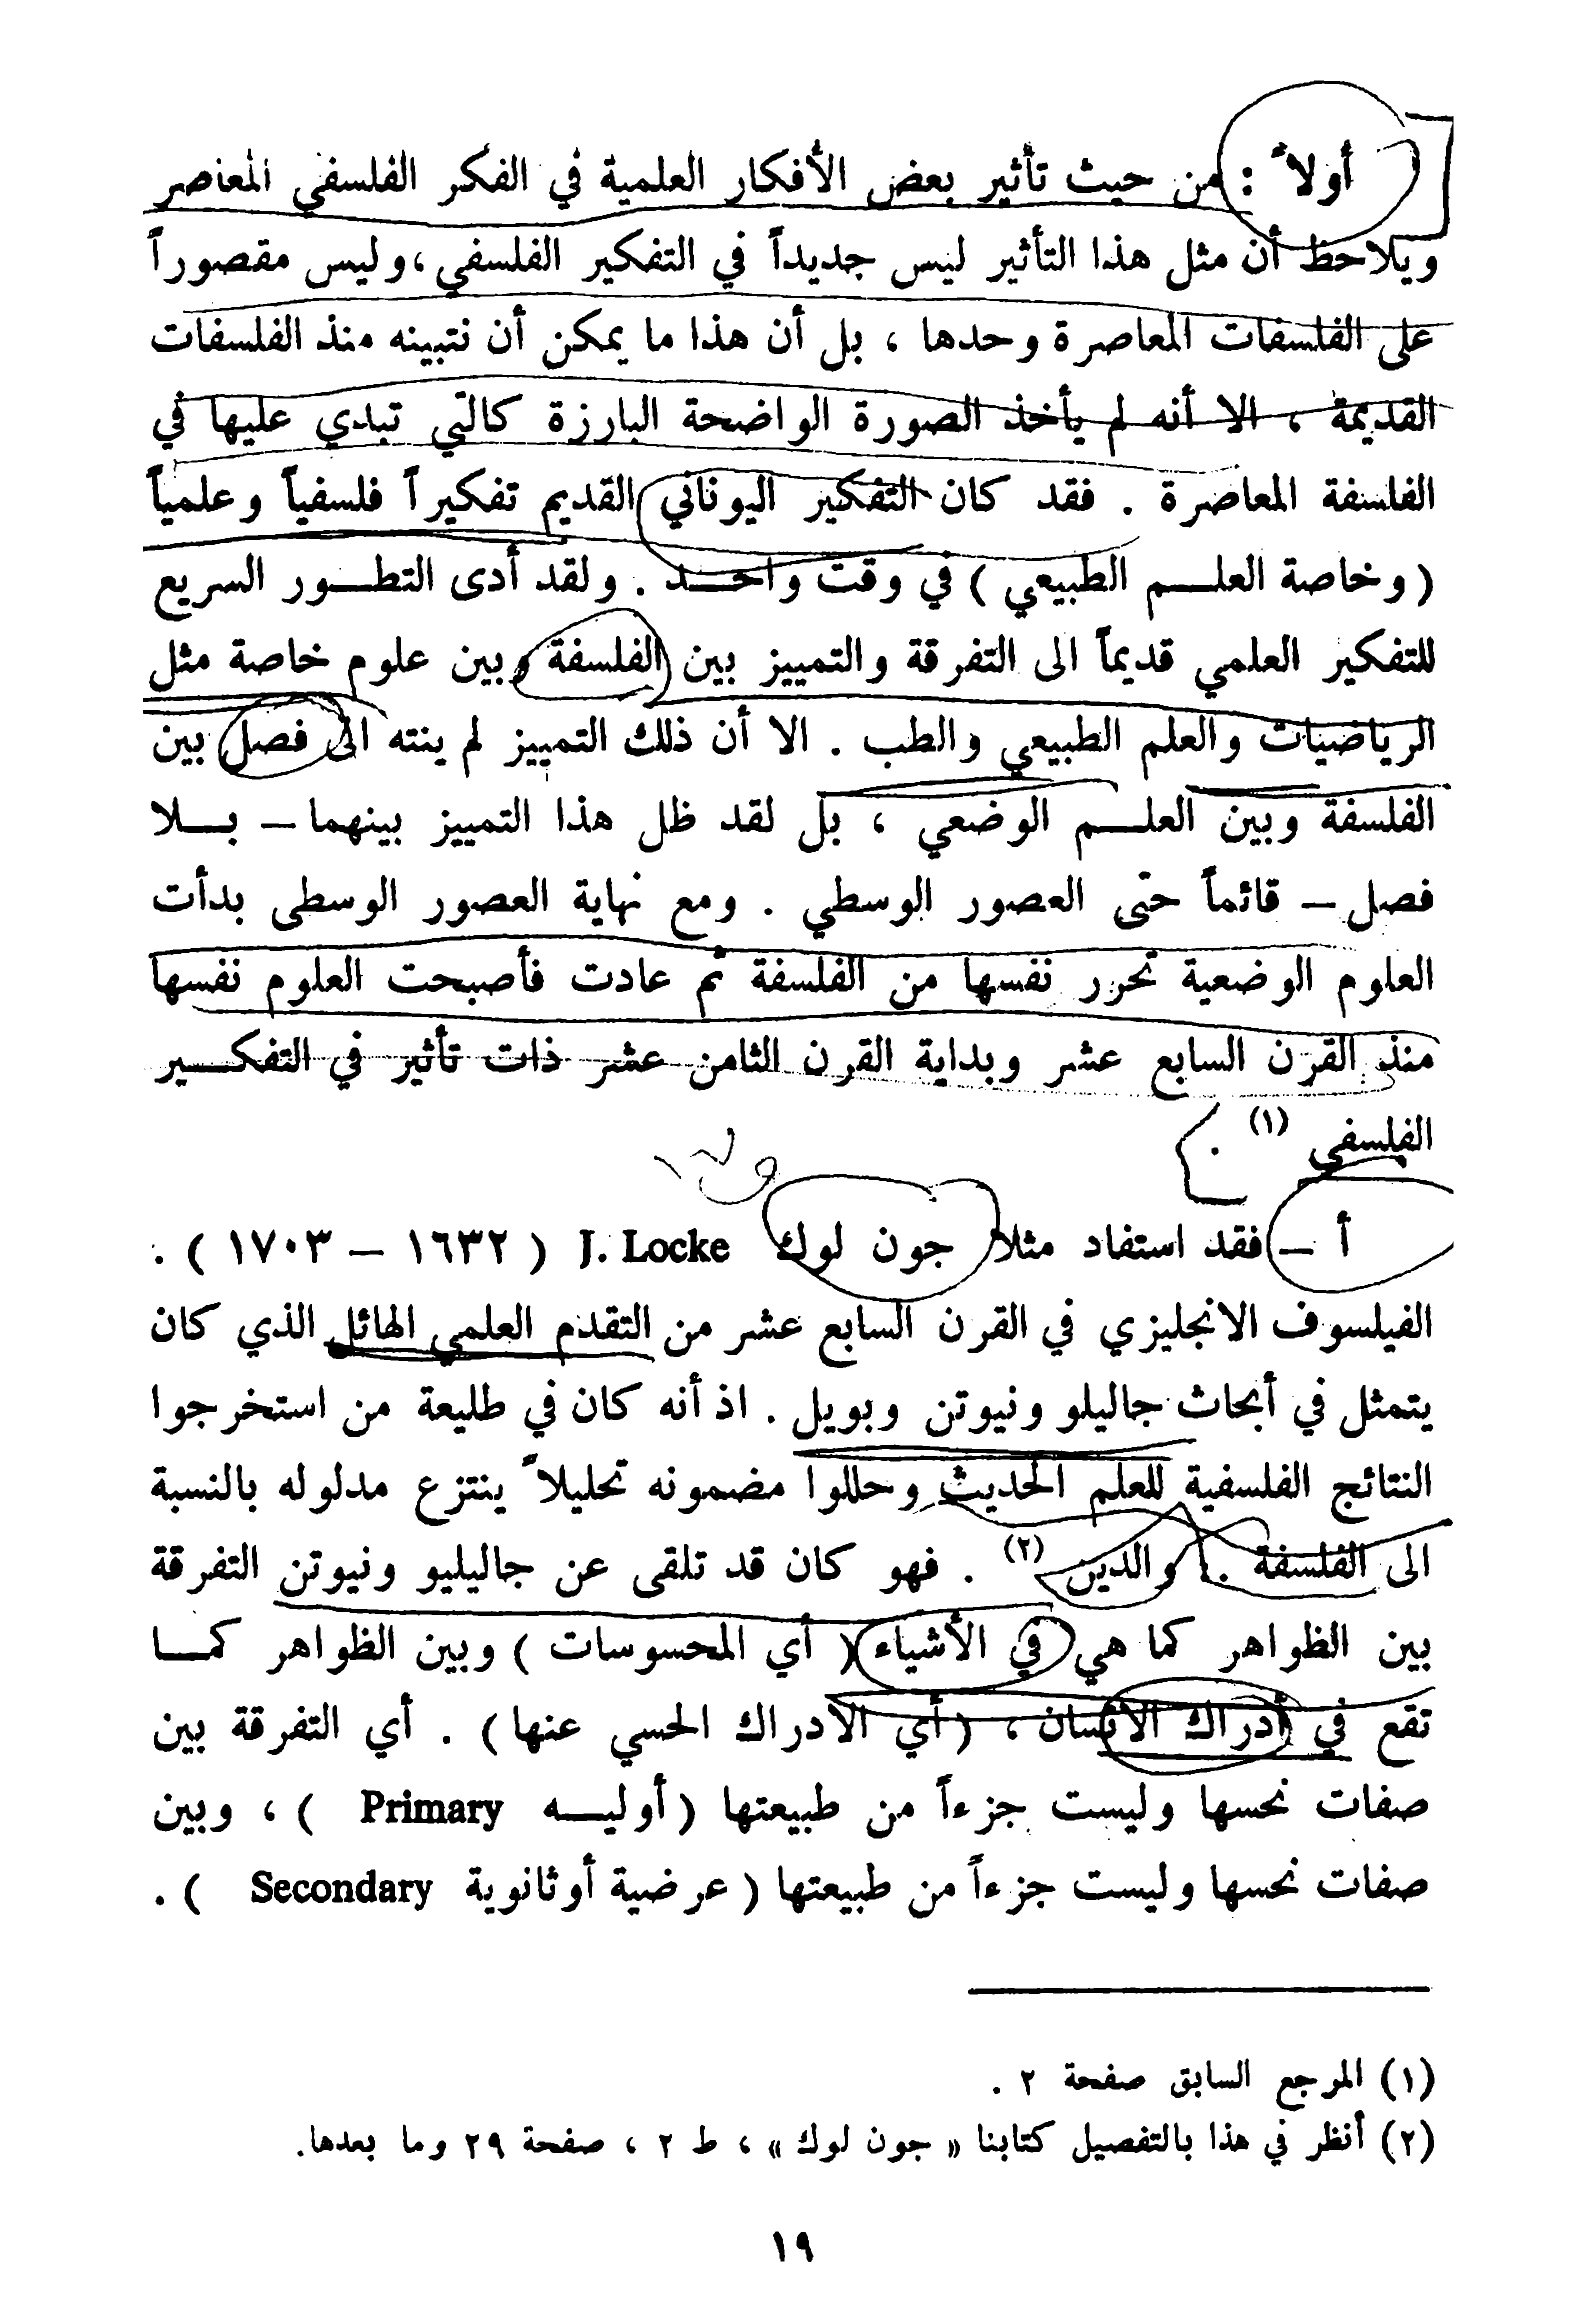 أولاً : من حيث تأثير بعض الأفكار العلمية في الفكر الفلسفي المعاصر
ويلاحظ أن مثل هذا التأثير ليس جديداً في التفكير الفلسفي ، وليس مقصوراً
على الفلسفات المعاصرة وحدها ، بل أن هذا ما يمكن أن نتبينه منذ الفلسفات
القديمة ، الا أنه لم يأخذ الصورة الواضحة البارزة كالتي تبدي عليها في
الفلسفة المعاصرة . فقد كان التفكير اليوناني القديم تفكيراً فلسفياً وعلمياً
( وخاصة العلـــم الطبيعي ) في وقت واحـــد . ولقد أدى التطـــور السريع
للتفكير العلمي قديماً الى التفرقة والتمييز بين الفلسفة وبين علوم خاصة مثل
الرياضيات والعلم الطبيعي والطب . الا أن ذلك التمييز لم ينته الى فصل بين
الفلسفة وبين العلـــم الوضعي ، بل لقد ظل هذا التمييز بينهما – بـــلا
فصل – قائماً حتى العصور الوسطي . ومع نهاية العصور الوسطى بدأت
العلوم الوضعية تحرر نفسها من الفلسفة ثم عادت فأصبحت العلوم نفسها
منذ القرن السابع عشر وبداية القرن الثامن عشر ذات تأثير في التفكـــير
الفلسفي (١) .
أ – فقد استفاد مثلا جون لوك J. Locke ( ١٦٣٢ – ١٧٠٣ ) .
الفيلسوف الانجليزي في القرن السابع عشر من التقدم العلمي الهائل الذي كان
يتمثل في أبحاث جاليلو ونيوتن وبويل . اذ أنه كان في طليعة من استخرجوا
النتائج الفلسفية للعلم الحديث وحللوا مضمونه تحليلاً ينتزع مدلوله بالنسبة
الى الفلسفة . والدين (٢) . فهو كان قد تلقى عن جاليليو ونيوتن التفرقة
بين الظواهر كما هي في الأشياء ( أي المحسوسات ) وبين الظواهر كمـــا
تقع في أدراك الانسان ، ( أي الادراك الحسي عنها ) . أي التفرقة بين
صفات نحسها وليست جزءاً من طبيعتها ( أوليـــه Primary ) ، وبين
صفات نحسها وليست جزءاً من طبيعتها ( عرضية أو ثانوية Secondary ) .
(١) المرجع السابق صفحة ٢ .
(٢) أنظر في هذا بالتفصيل كتابنا « جون لوك » ، ط ٢ ، صفحة ٢٩ وما بعدها.
١٩